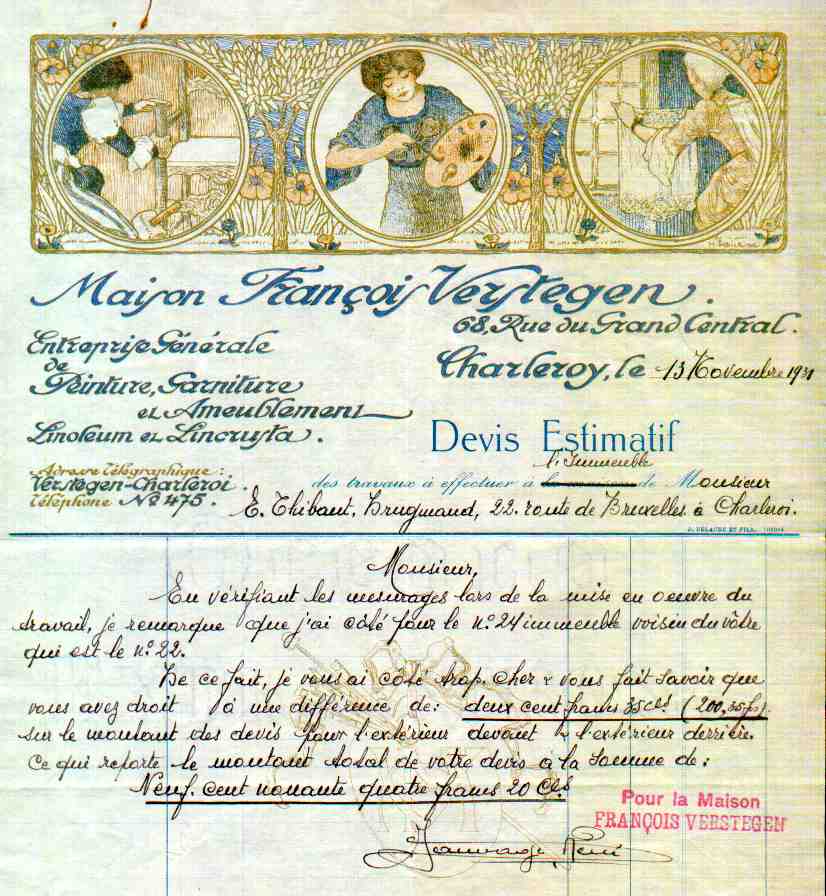 Maison François Verstegen.
68, Rue du Grand Central.
Entreprise Générale
de
Peinture, Garniture
et Ameublement
Linoleum et Lincrusta.
Charleroy, le 13 Novembre 1931
Devis Estimatif
l'Immeuble
Adresse Télégraphique:
Verstegen-Charleroi.
Téléphone No 475.
des travaux à effectuer à de Monsieur
E. Thibaut, 22. route de Bruxelles à Charleroi.
Monsieur,
En vérifiant les mesurages lors de la mise en oeuvre du
travail, je remarque que j'ai côté pour le no. 24 immeuble voisin du vôtre
qui est le no. 22.
De ce fait, je vous ai côté trop cher & vous fait savoir que
vous avez droit à une différence de: deux cent francs 35 cts (200,35 frs)
sur le montant des devis pour l'extérieur devant & l'extérieur derrière.
Ce qui reporte le montant total de votre devis à la somme de:
Neuf. cent nonante quatre francs 20 Cts
Pour la Maison
FRANÇOIS VERSTEGEN